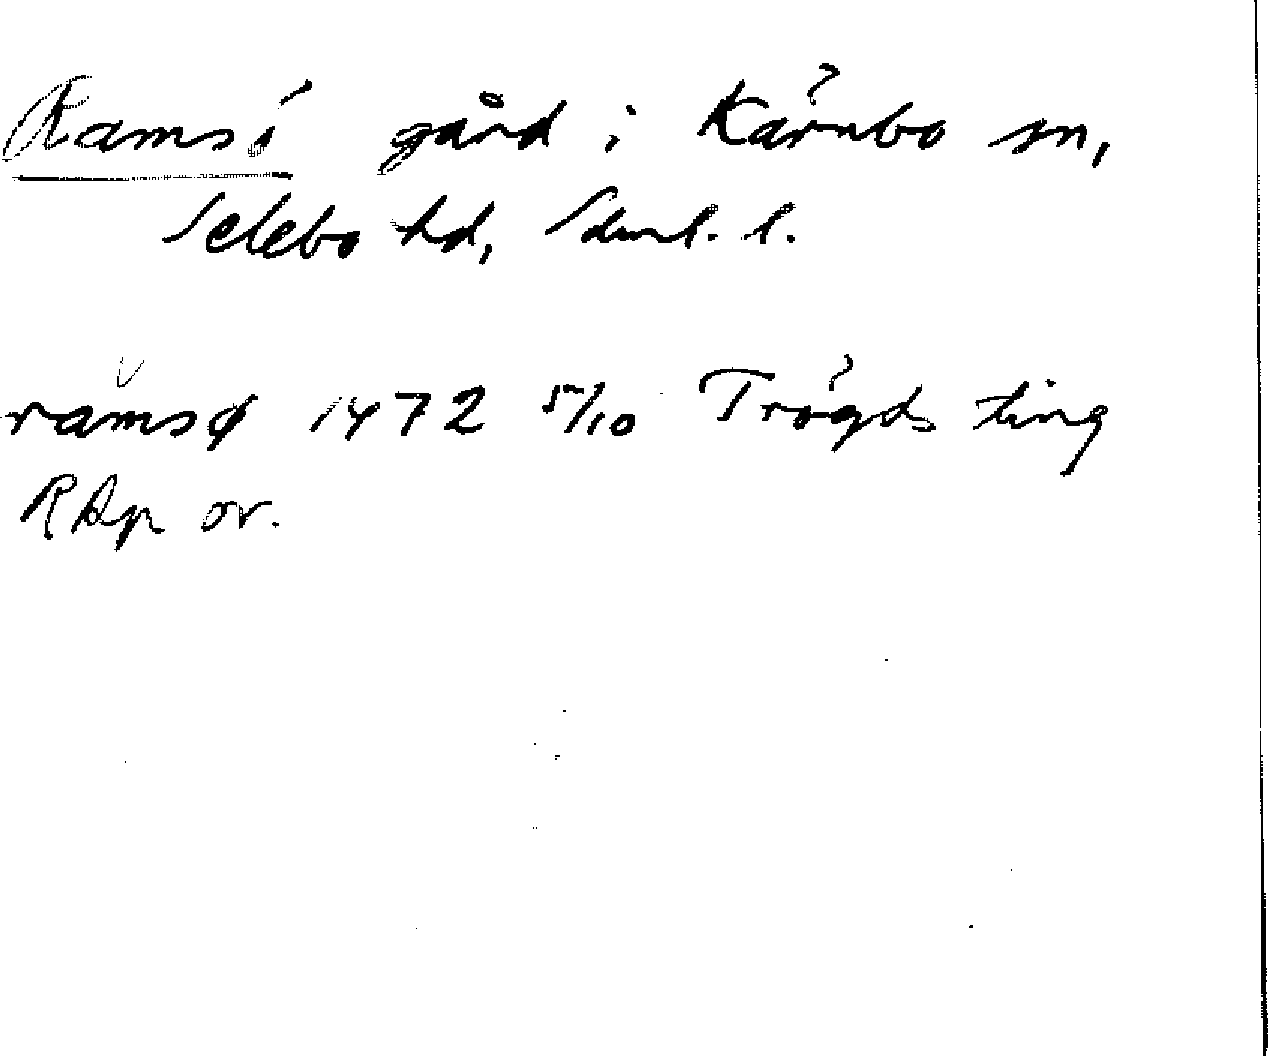 Ramsö gård i Kärnbo sn,
Selebo hd, Sdml. l.
ramsø 1472 5/10 Trögds ting
RAp or.